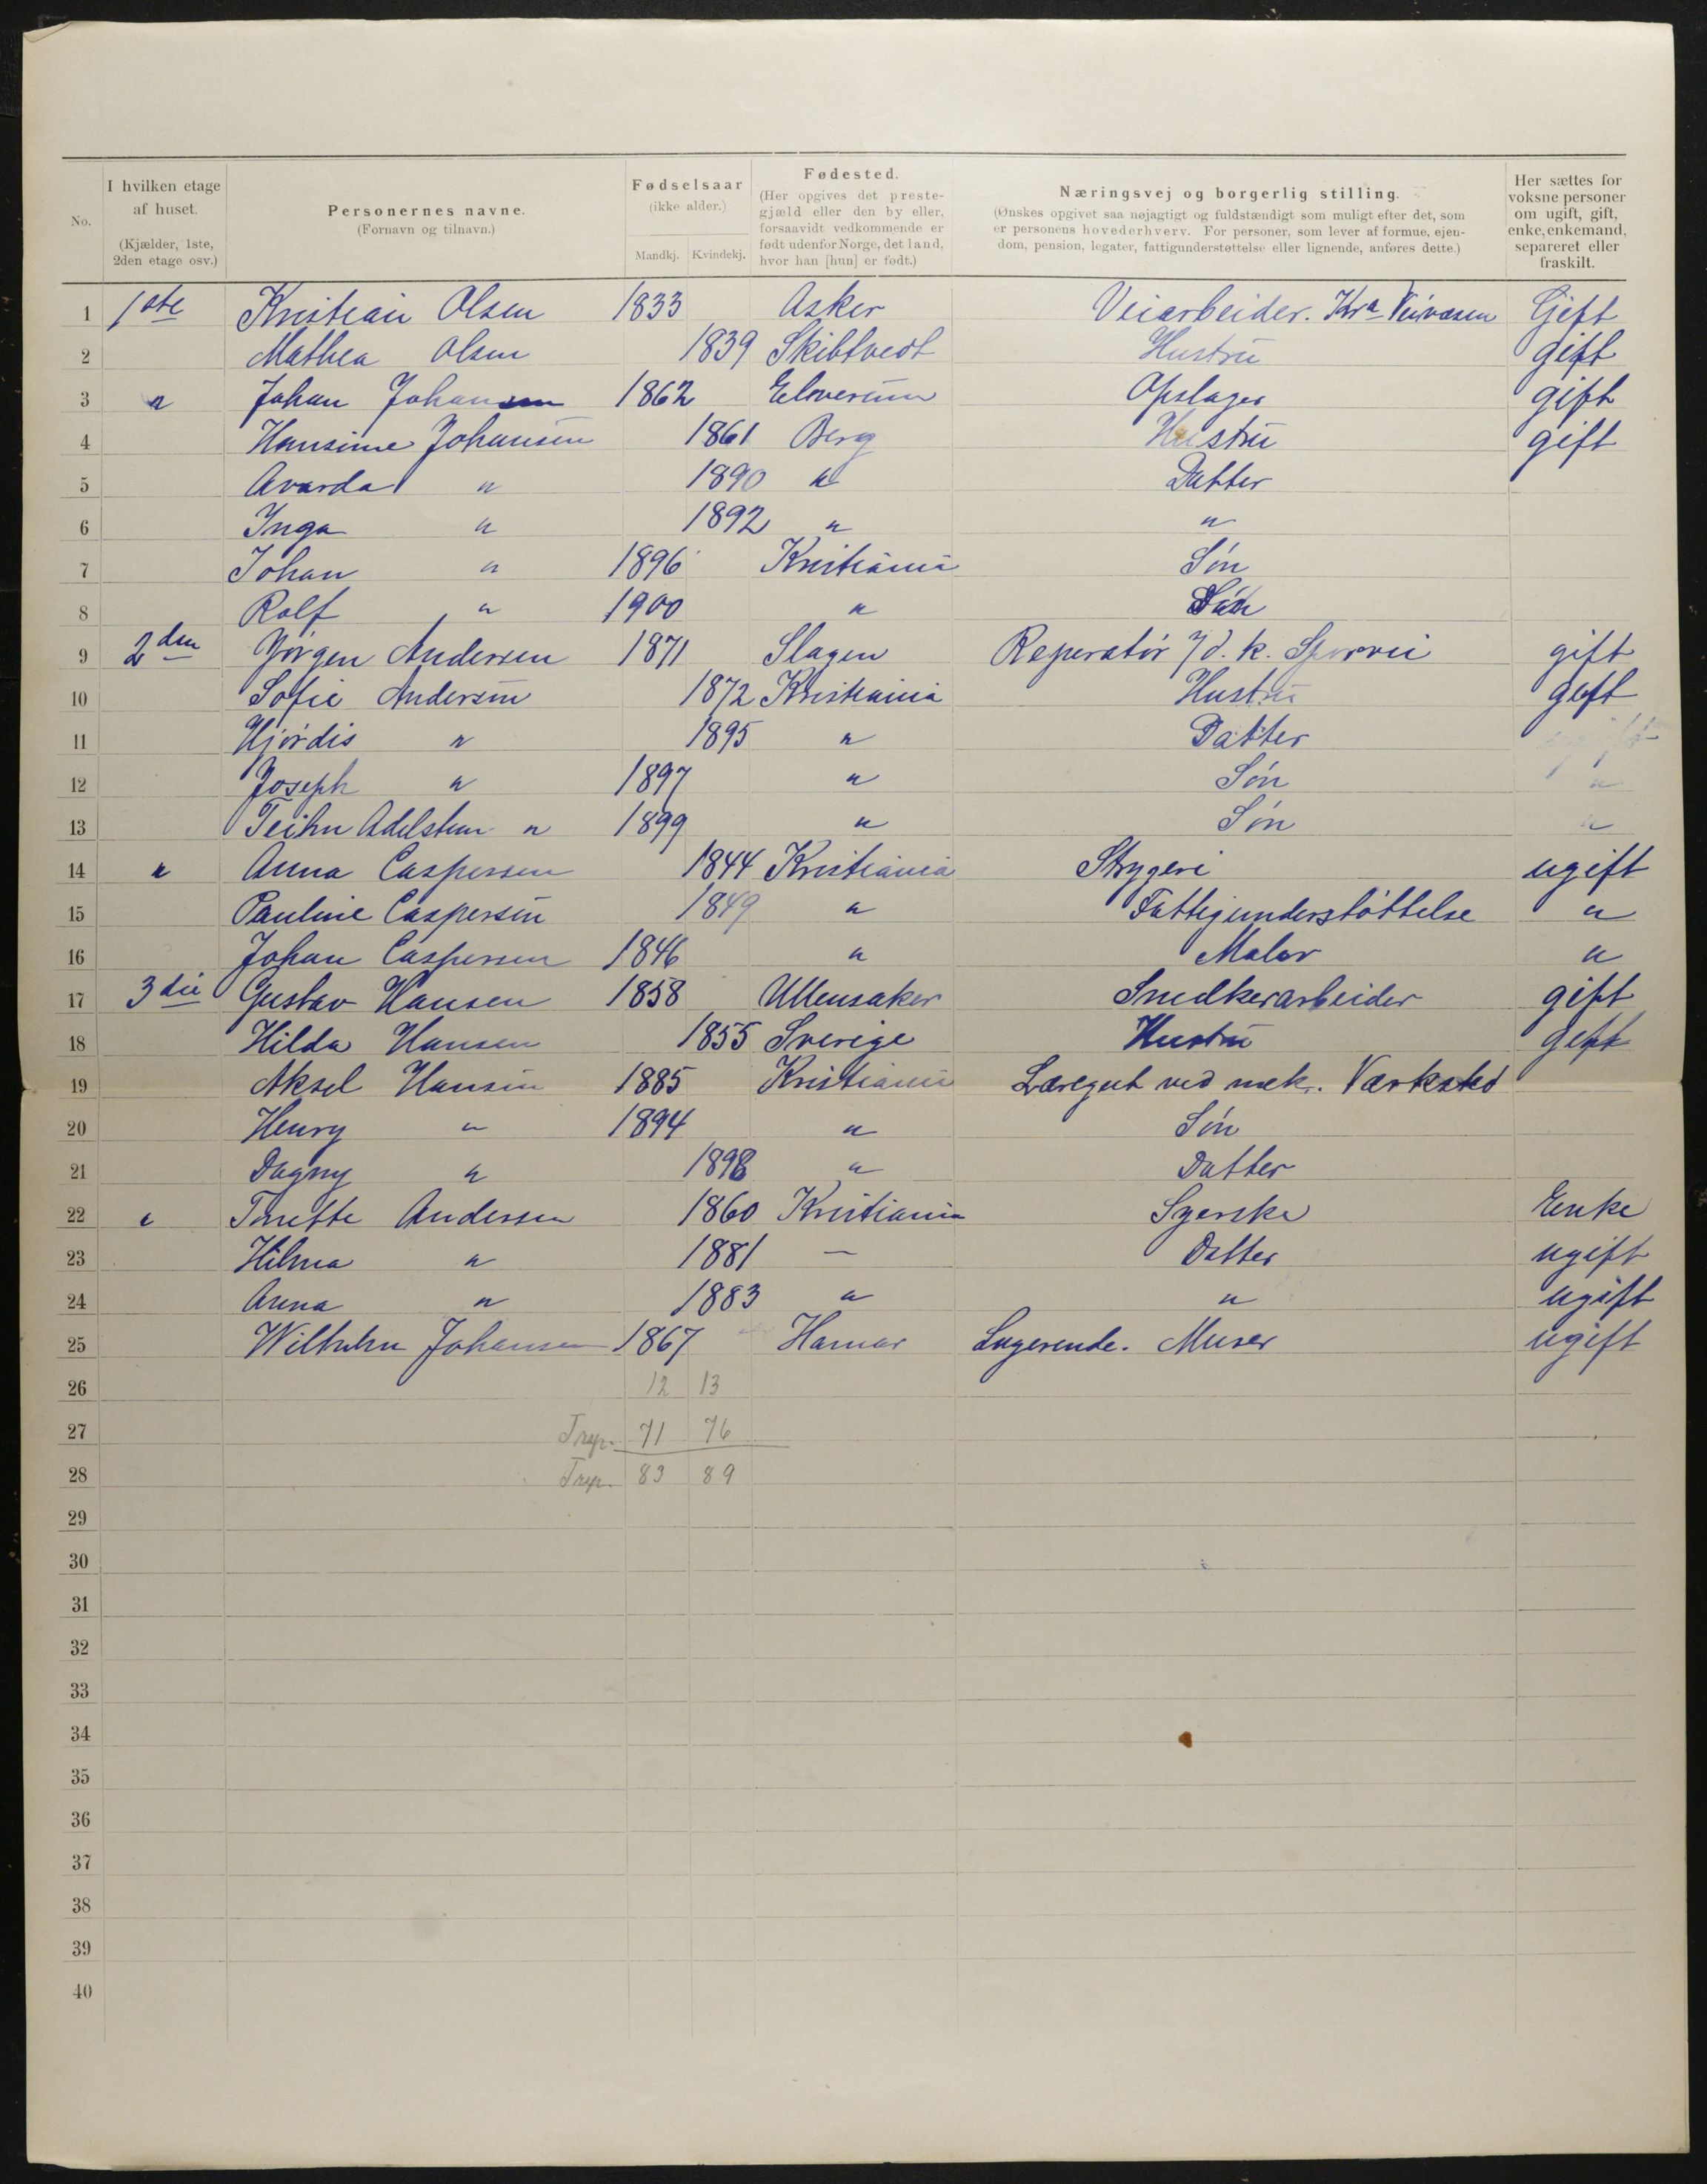 No. I hvilken etage af huset. (Kjælder, 1ste, 2den etage osv.) Personernes navne. (Fornavn og tilnavn.) Fødselsaar (ikke alder.) Mandkj. Kvindekj. Fødested. (Her opgives det prestegjæld eller den by eller, forsaavidt vedkommende er født udenfor Norge, det land, hvor han [hun] er født.) Næringsvej og borgerlig stilling. (Ønskes opgivet saa nøjagtigt og fuldstændigt som muligt efter det, som er personens hovederhverv. For personer, som lever af formue, ejendom, pension, legater, fattigunderstøttelse eller lignende, anføres dette.) Her sættes for voksne personer om ugift, gift, enke, enkemand, separeret eller fraskilt.
1 1ste Kristian Olsen 1833 Asker Veiarbeider. Kra Veivæsen Gift
2 Mathea Olsen 1839 Skibtvedt Hustru gift
3 " Johan Johansen 1862 Elverum Opslager gift
4 Hansine Johansen 1861 Berg Hustru gift
5 Avarda " 1890 " Datter
6 Inga " 1892 " "
7 Johan " 1896 Kristiania Søn
8 Rolf " 1900 " Søn
9 2den Jørgen Andersen 1871 Slagen Reperatør d. k. Sporvei gift
10 Sofie Andersen 1872 Kristiania Hustru gift
11 Hjørdis " 1895 " Datter
12 Joseph " 1897 " Søn "
13 Adelsten " 1899 " Søn "
14 " Anna Caspersen 1844 Kristiania Strygeri ugift
15 Pauline Caspersen 1849 " Fattigunderstøttelse "
16 Johan Caspersen 1846 " Maler "
17 3die Gustav Hansen 1858 Ullensaker Snedkerarbeider gift
18 Hilda Hansen 1855 Sverige Hustru gift
19 Aksel Hansen 1885 Kristiania Læregut ved mek. Værksted
20 Henry " 1894 " Søn
21 Dagny " 1898 " Datter
22 " Andersen 1860 Kristiania Syerske Enke
23 Hilma " 1881 — Datter ugift
24 Anna " 1883 " " ugift
25 Wilhelm Johansen 1867 Hamar Logerende. Murer ugift
26 12 13
27 71 76
28 83 89
29
30
31
32
33
34
35
36
37
38
39
40